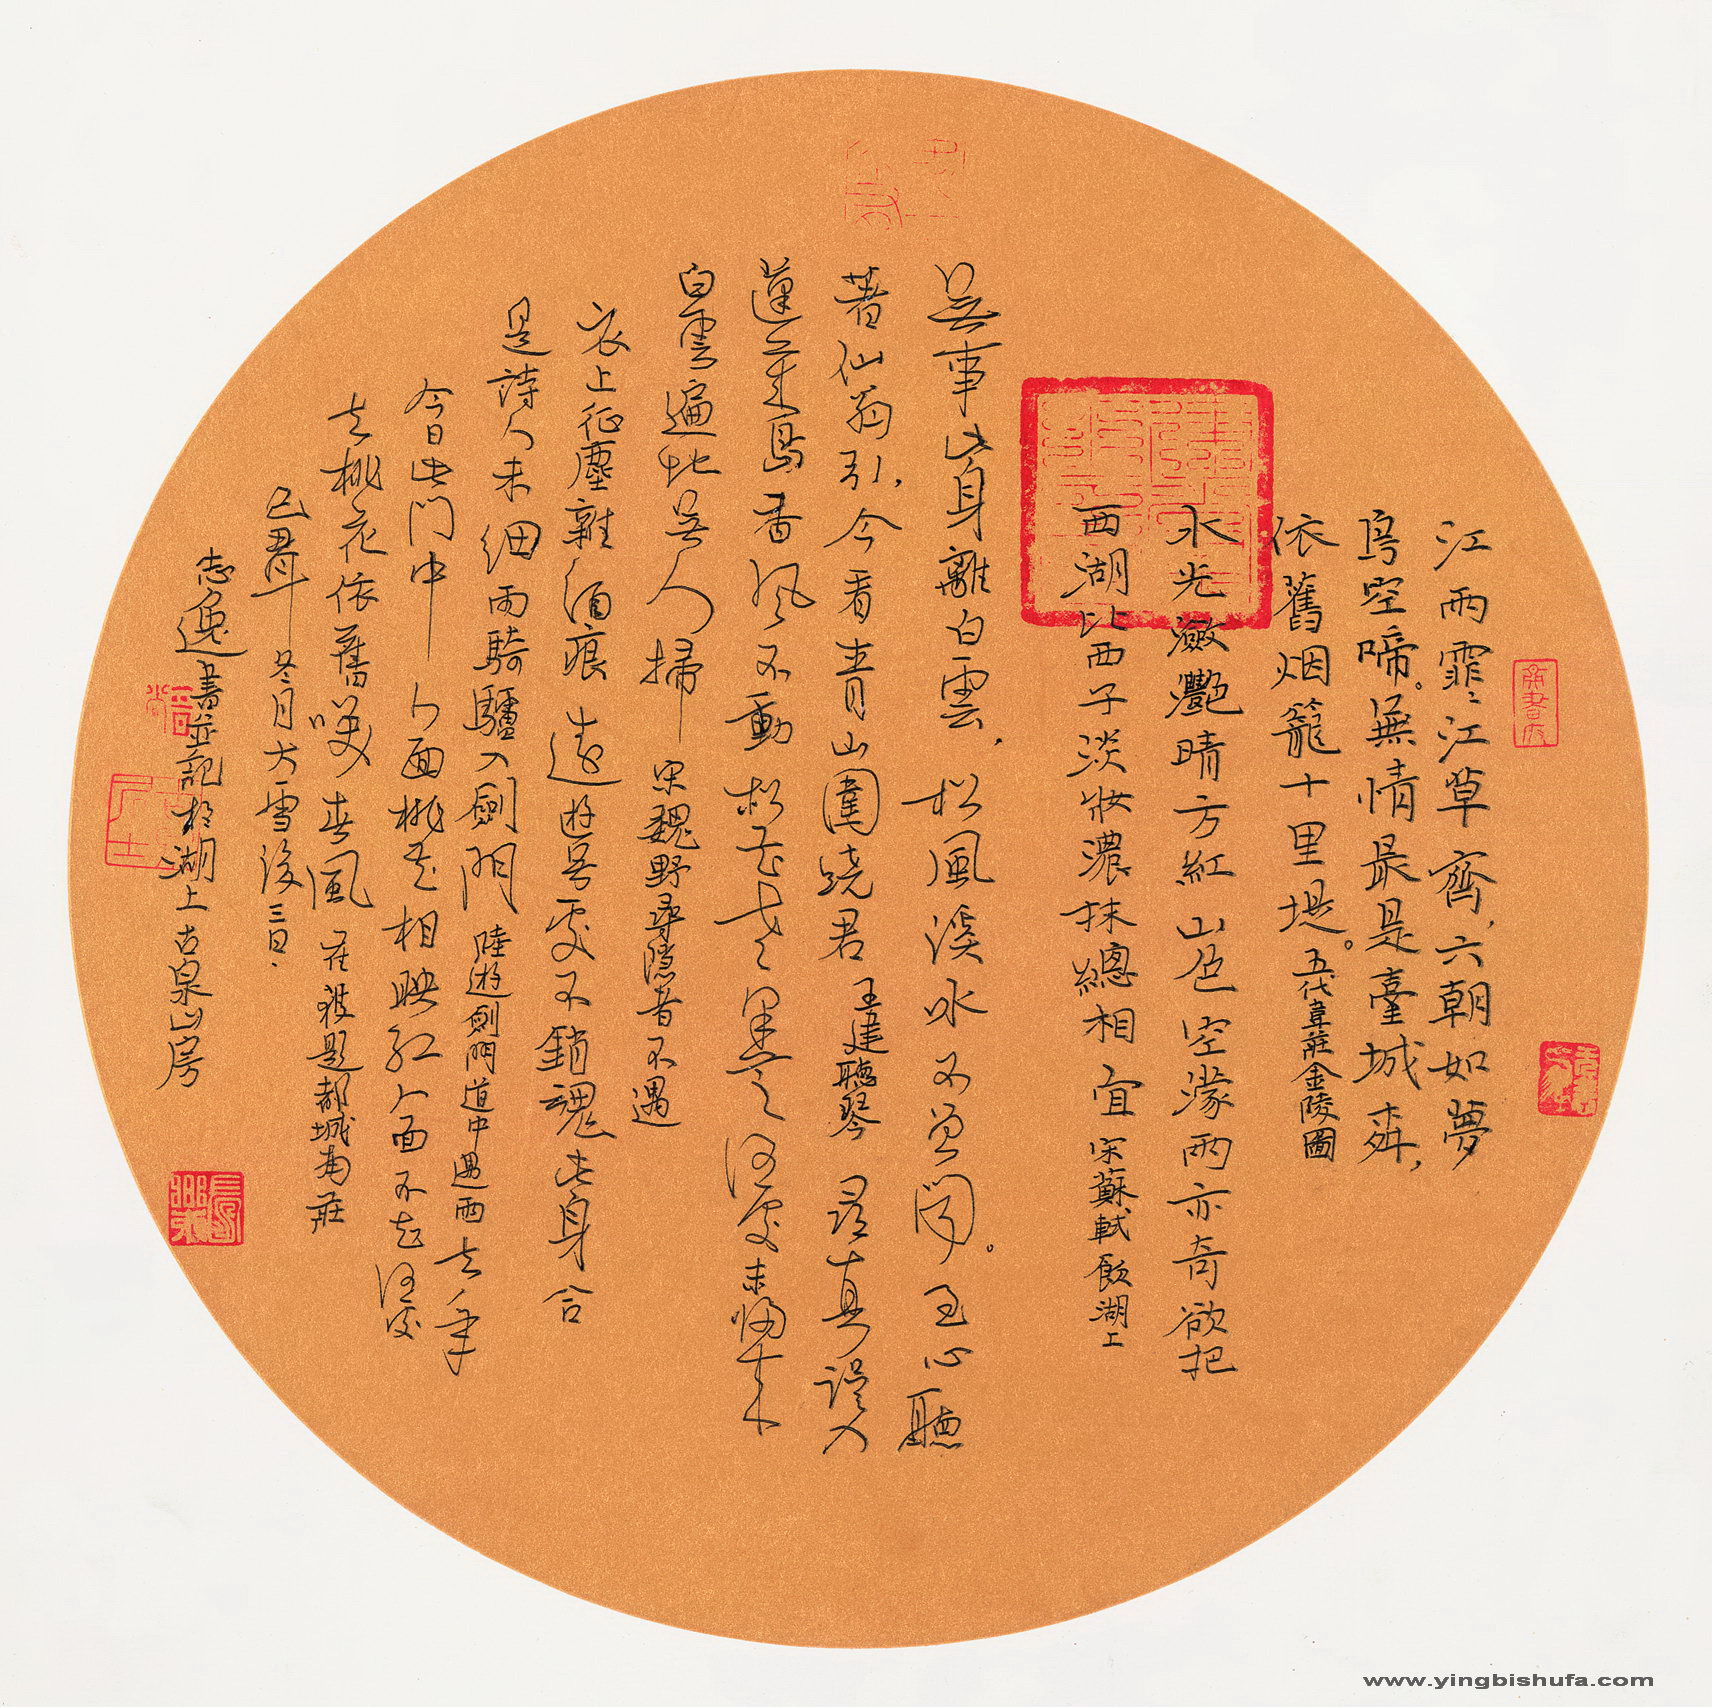 江雨霏霏江草齊，六朝如夢
鳥空啼。無情最是臺城柳，
依舊烟籠十里堤。五代韋莊金陵圖
水光瀲灩晴方紅山色空濛雨亦奇欲把
西湖比西子淡妝濃抹總相宜 宋蘇軾飲湖上
無事此身離白雲，松風溪水不曾聞。至心聽
著仙翁引，今看青山圍繞君 王建聽琴 尋真誤入
蓬萊島香風不動松花老采芝何處未歸來
白雲遍地無人掃 宋魏野尋隱者不遇
衣上征塵雜酒痕遠遊無處不銷魂此身合
是詩人未細雨騎驢入劍門 陸遊劍門道中遇雨 去年
今日此門中人面桃花相映紅人面不知何處
去桃花依舊笑春風 崔護題都城南莊
己丑年冬月大雪後三日、
志逸書並記於湖上古泉山房
www.yingbishufa.com